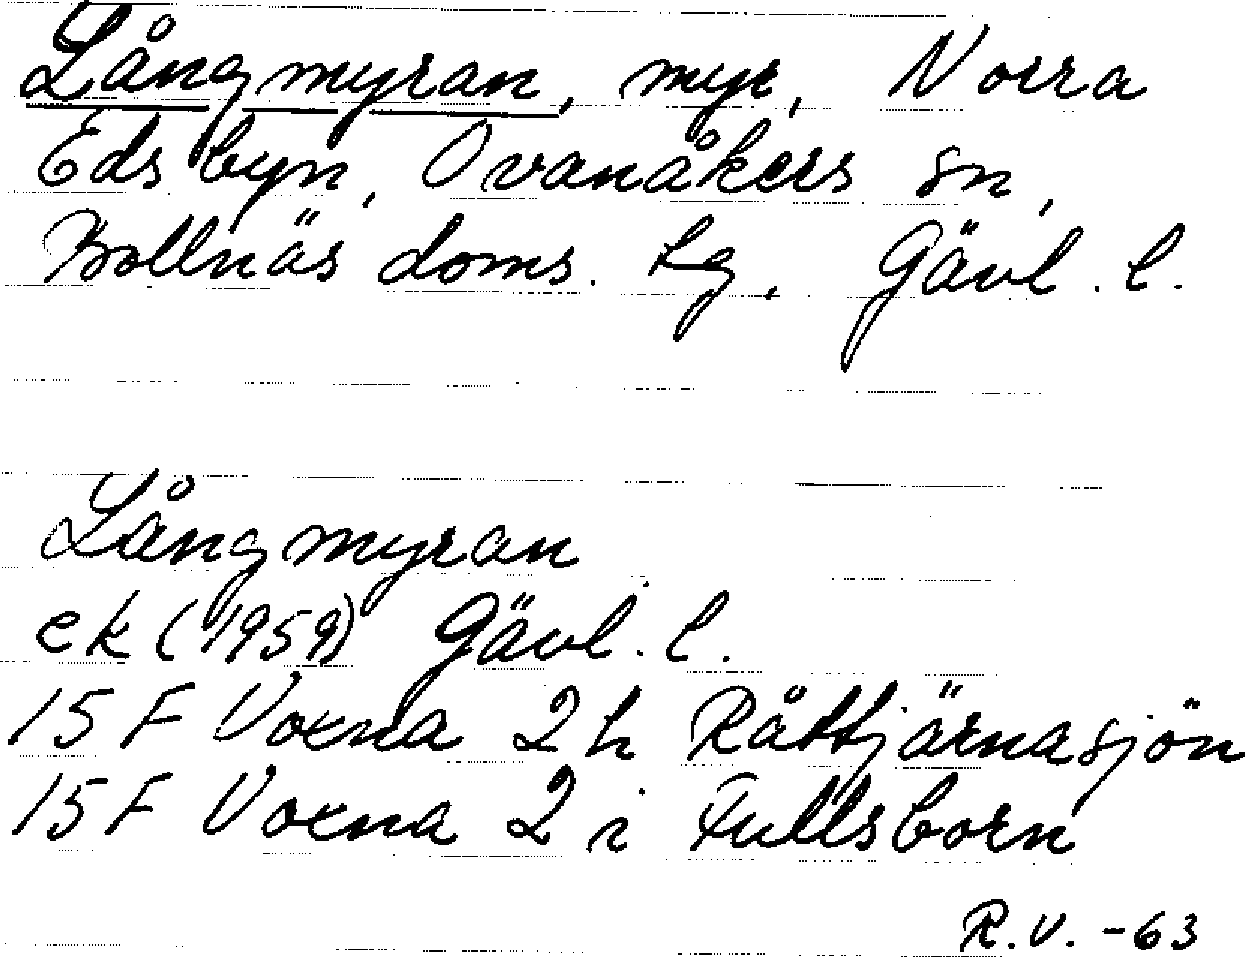 Långmyran, myr, Norra
Edsbyn, Ovanåkers sn,
Bollnäs doms. tg, Gävl. l.
Långmyran
ek (1959) Gävl. l.
15 F Voxna 2 h Råttjärnasjön
15 F Voxna 2 i Fullsborn
R.V. -63